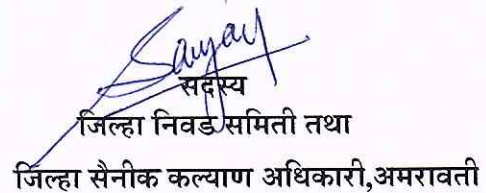 Sanjay
सदस्य
जिल्हा निवड समिती तथा
जिल्हा सैनीक कल्याण अधिकारी,अमरावती